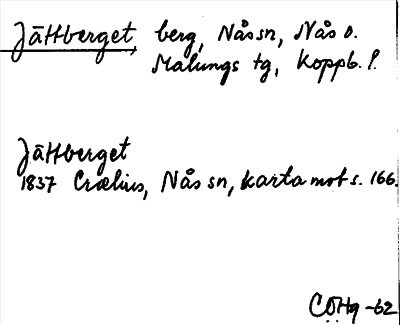 Jättberget, berg, Nås sn, Nås o.
Malungs tg, Koppb. l.
Jättberget
1837 Crælius, Nås sn, karta mot s. 166.
COHq -62